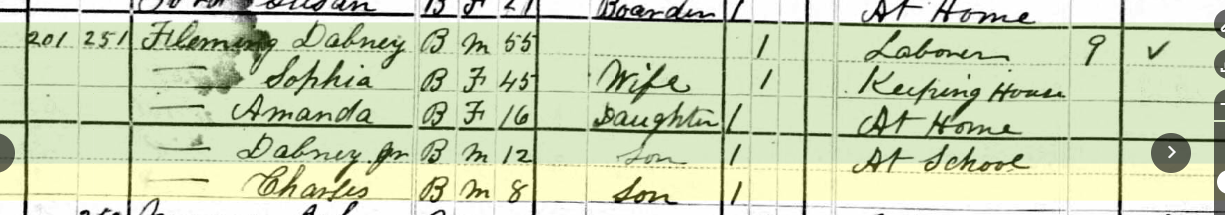 Susan B F 21 Boarder 1 At Home
201 251 Fleming Dabney B M 55 1 Laborer 9 ✓
— Sophia B F 45 Wife 1 Keeping House
— Amanda B F 16 Daughter 1 At Home
— Dabney Jr B M 12 Son 1 At School
— Charles B M 8 Son 1